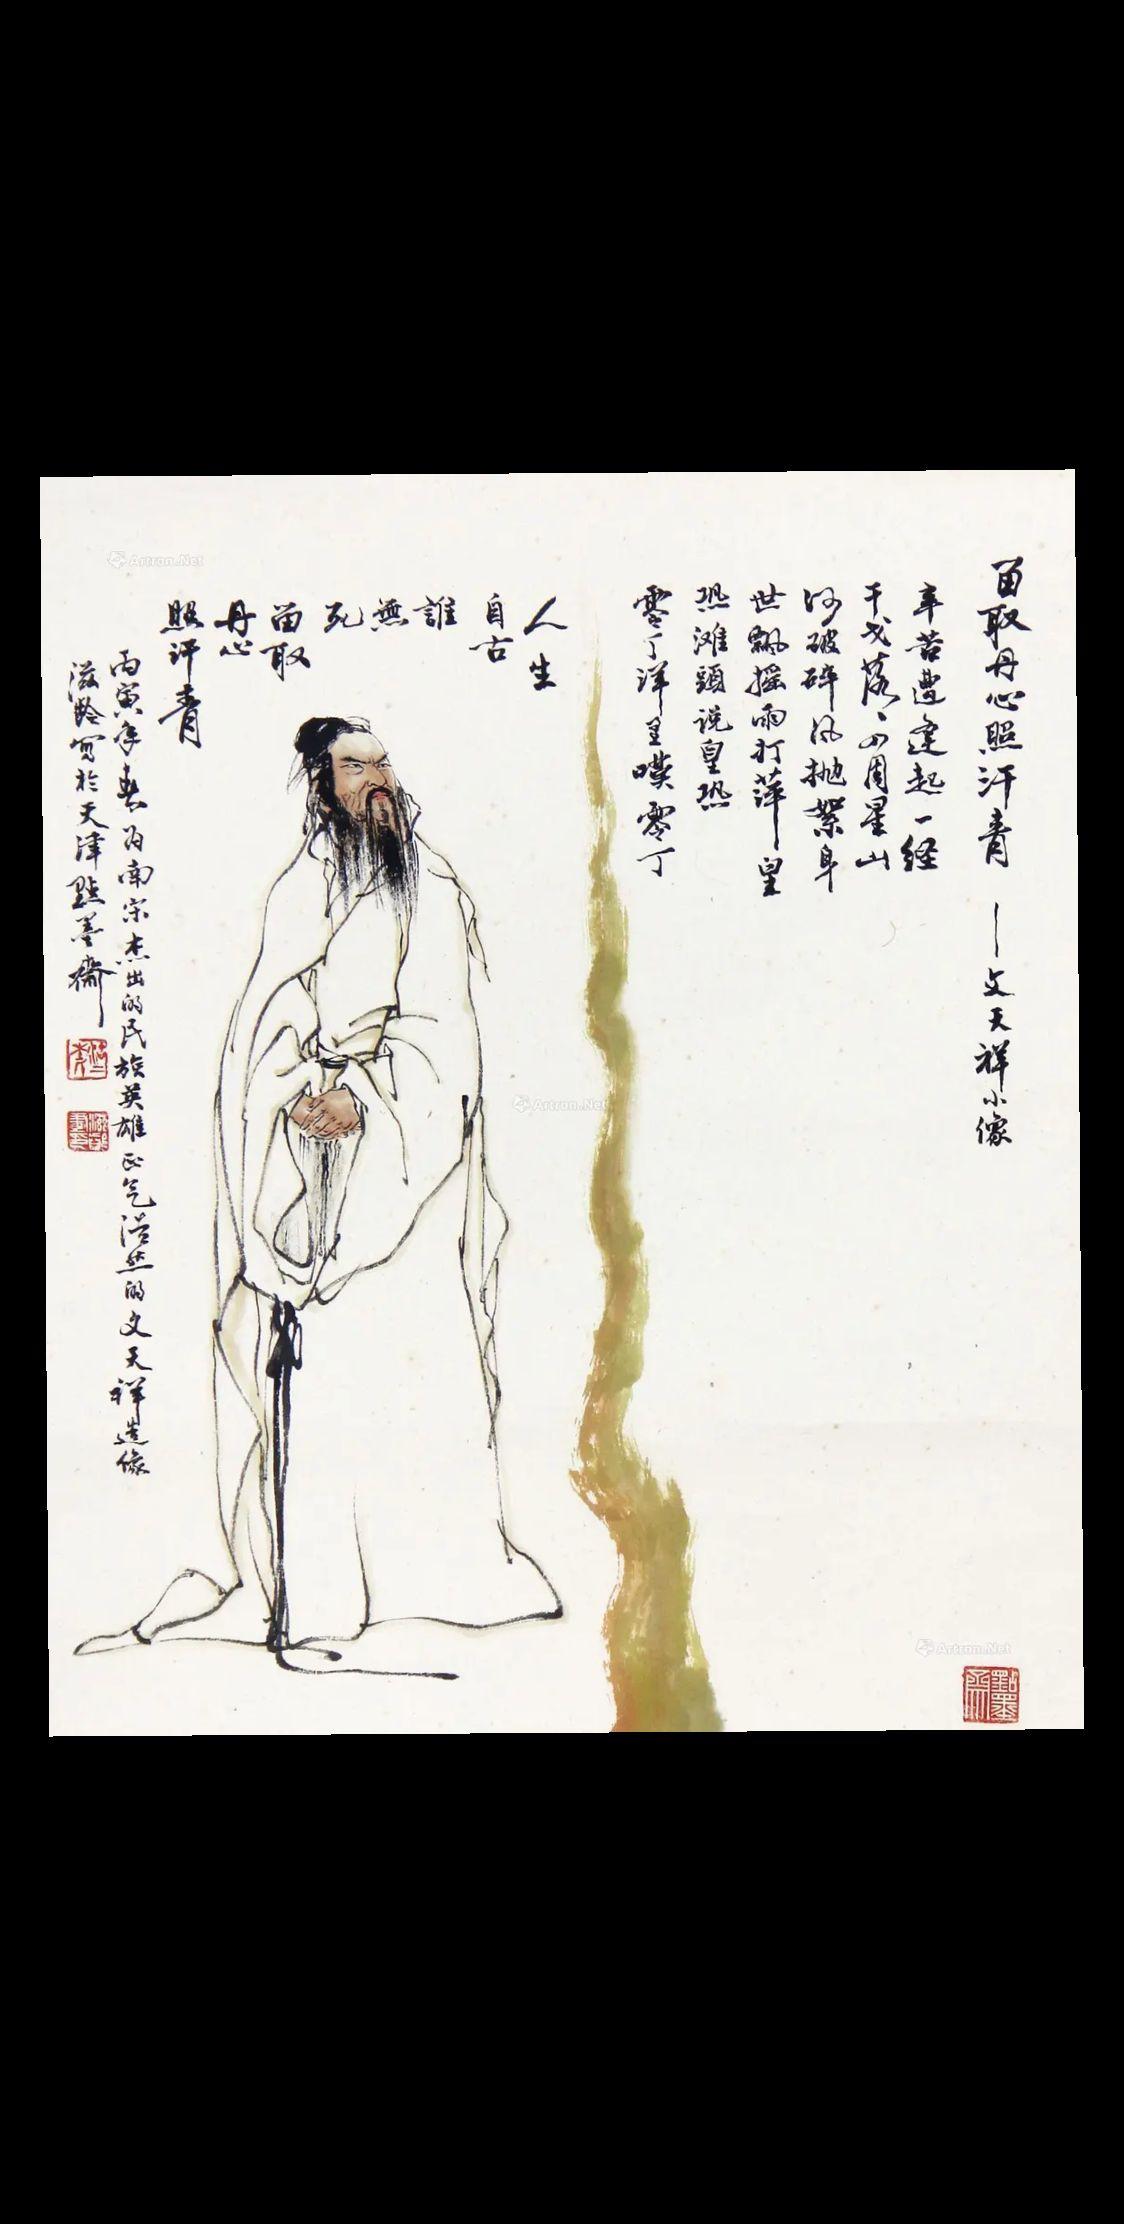 留取丹心照汗青 — 文天祥小像
辛苦遭逢起一经
干戈落々四周星山
河破碎风抛絮身
世飘摇雨打萍皇
恐滩頭说皇恐
零丁洋里嘆零丁
人生
自古
誰
無
死
留取
丹心
照汗青
丙寅年春为南宋杰出的民族英雄正气浩然的文天祥造像
滋齡写於天津點墨齋
點墨齋
Artron.Net
Artron.Net
Artron.Net